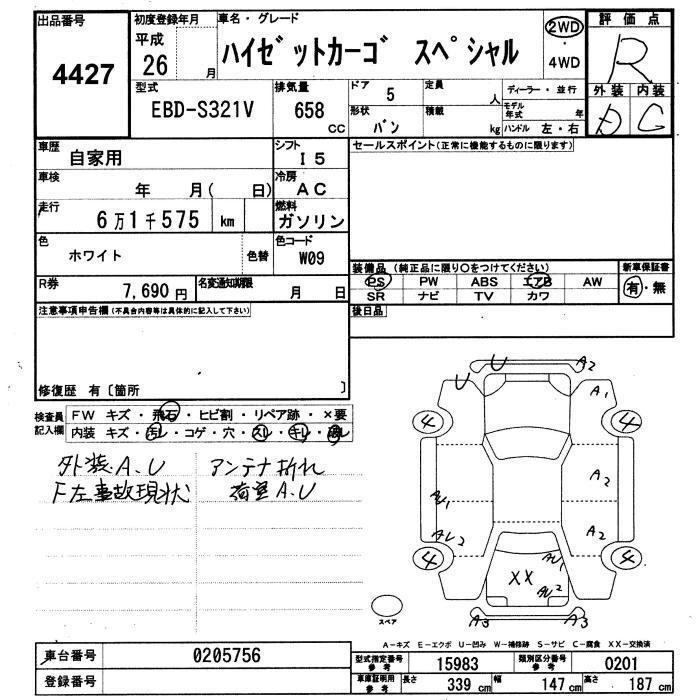 出品番号 初度登録年月 車名・グレード 評価点
4427 平成 26 月 ハイゼットカーゴ スペシャル 2WD・4WD R
外装 内装
型式 排気量 ドア 定員 ディーラー・並行
EBD-S321V 658 CC 5 人
形状 積載 モデル年式 年
バン kg ハンドル 左・右
C
車歴 自家用 シフト I5 セールスポイント(正常に機能するものに限ります)
車検 年 月( 日) 冷房 AC
走行 6万1千575 km 燃料 ガソリン
色 ホワイト 色替 色コード W09
装備品 (純正品に限り○をつけてください) 新車保証書
R券 7,690円 名変通知期限 月 日 PS PW ABS エアB AW 有・無
SR ナビ TV カワ
注意事項申告欄(不具合内容等は具体的に記入して下さい) 後日品
修復歴 有〔箇所 〕
検査員記入欄 FW キズ・飛石・ヒビ割・リペア跡・×要
内装 キズ・汚レ・コゲ・穴・スレ・キレ・
外装A.U アンテナ折れ
F左事故現状 荷室A.U
U U A2
A1
4 4
A2
AU1
A2
AU2
4 4
AU1
XX AU2
A3 A3
スペア
A-キズ E-エクボ U-凹み W-補修跡 S-サビ C-腐食 XX-交換済
車台番号 0205756 型式指定番号 参考 15983 類別区分番号 参考 0201
登録番号 車庫証明用 参考 長さ 339 cm 幅 147 cm 高さ 187 cm